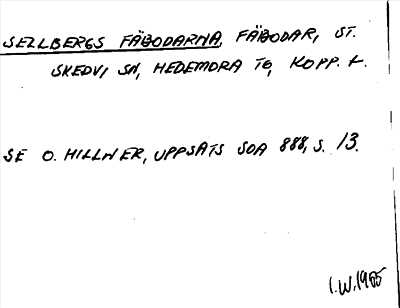 SELLBERGS FÄBODARNA, FÄBODAR, ST.
SKEDVI SN, HEDEMORA TG, KOPP. L.
SE O. HILLNER, UPPSATS SOA 888, S. 13.
I.W. 1965